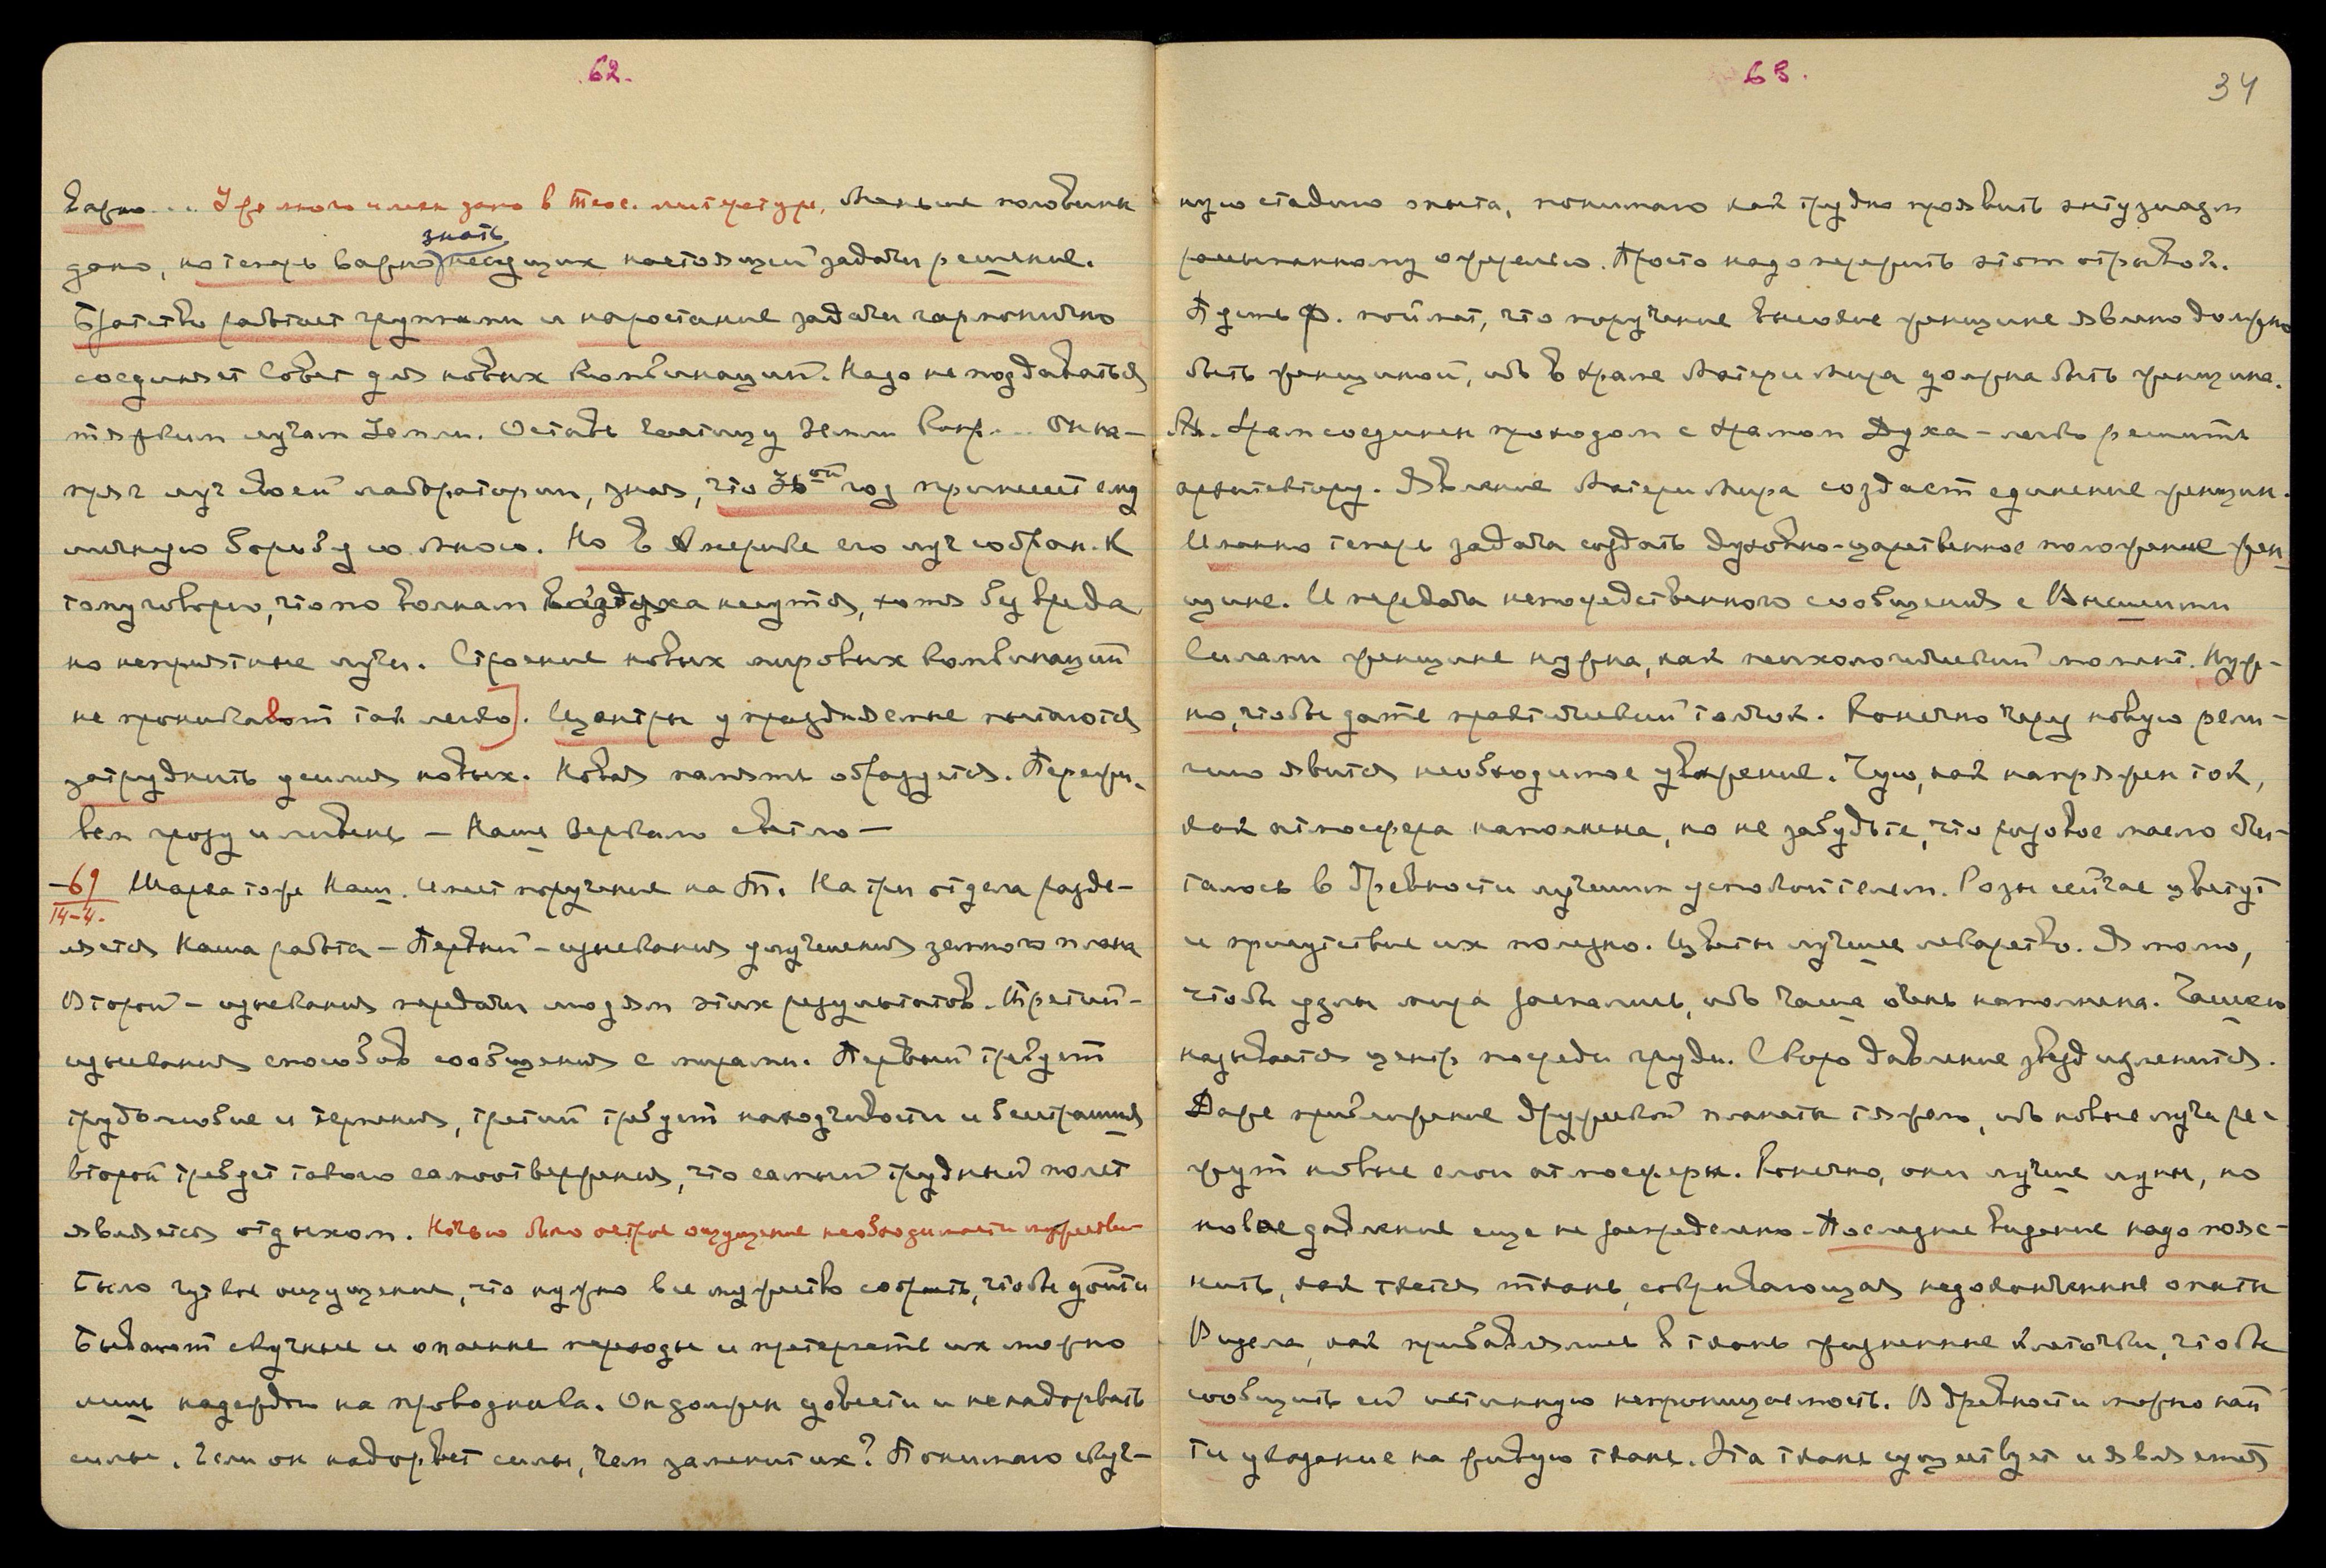 62.
Важно... Уже много имен дано в теос. литературе. Меньше половины
знать
дано, но теперь важно несущих настоящей задачи решение.
Братство работает группами и наростание задачи гармонично
соединяет Совет для новых комбинаций. Надо не поддаваться
тяжким лучам Земли. Оставь частицу земли Он на-
пряг луч своей лаборатории, зная, что 36ой год принесет ему
личную борьбу со Мною. Но в Америке его луч собран. К
тому говорю, что по волнам воздуха несутся, хотя без вреда,
но неприятные лучи. Строение новых мировых комбинаций
не проникают так легко]. Центры упраздняемые пытаются
затруднить усилия новых. Новая память образуется. Пережи-
вем грозу и ливень — Наше зеркало светло —
-69 Шарка тоже Наш. Имеет поручение на Т. На три отдела разде-
14-4.
ляется Наша работа — Первый — изыскания улучшения земного плана
Второй — изыскания передачи людям этих результатов. Третий —
изыскания способов сообщения с мирами. Первый требует
трудолюбие и терпения, третий требует находчивости и бесстрашия
второй требует такого самоотвержения, что самый трудный полет
является отдыхом. Ночью было острое ощущение необходимости мужества
Было чуткое ощущение, что нужно все мужество собрать, чтобы дойти
Бывают скучные и опасные переходы и претерпеть их можно
лишь надеждою на проводника. Он должен довести и не надорвать
силы. Если он надорвет силы, чем заменит их? Понимаю скуч-
63.
34
ную стадию опыта, понимаю как трудно проявить энтузиазм
Просто надо пережить этот отрывок.
Пусть Ф. поймет, что поручение Высокое женщине явлено должно
быть женщиной, ибо в храме Матери Мира должна быть женщина.
Храм соединен проходом с храмом Духа — легко решить
архитектору. Явление Матери Мира создаст единение женщин.
Именно теперь задача создать духовно-царственное положение жен-
щине. И передача непосредственного сообщения с Высшими
Силами женщине нужна, как психологический момент. Нуж-
но, чтобы дать практический толчок. Конечно через новую рели-
гию явится необходимое уважение. Чую, как напряжен ток,
как атмосфера наполнена, но не забудьте, что розовое масло счи-
талось в древности лучшим успокоителем. Розы сейчас цветут
и присутствие их полезно. Цветы лучшее лекарство. Я молю,
чтобы узлы мира распались, ибо чаша очень наполнена. Чашею
называется центр посреди груди. Скоро давление звезд изменится.
Даже приближение дружеской планеты тяжело, ибо новые лучи ре-
жут новые слои атмосферы. Конечно, они лучше луны, но
новое давление еще не распределено. Последнее видение надо пояс-
нить, как ткется ткань, сокрывающая недоконченные опыты
Видела, как прибавлялись в ткань жизненные клеточки, чтобы
сообщить ей истинную непроницаемость. В древности можно най-
ти указание на живую ткань. Эта ткань существует и является